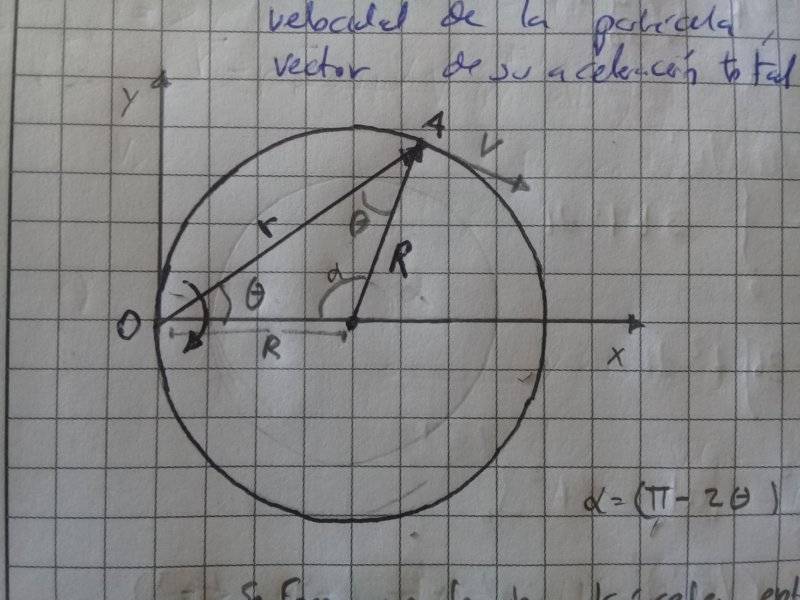 velocidad de la partícula,
vector de su aceleración total
y
A
V
r
θ
α
R
θ
O
R
x
α = (π - 2θ)